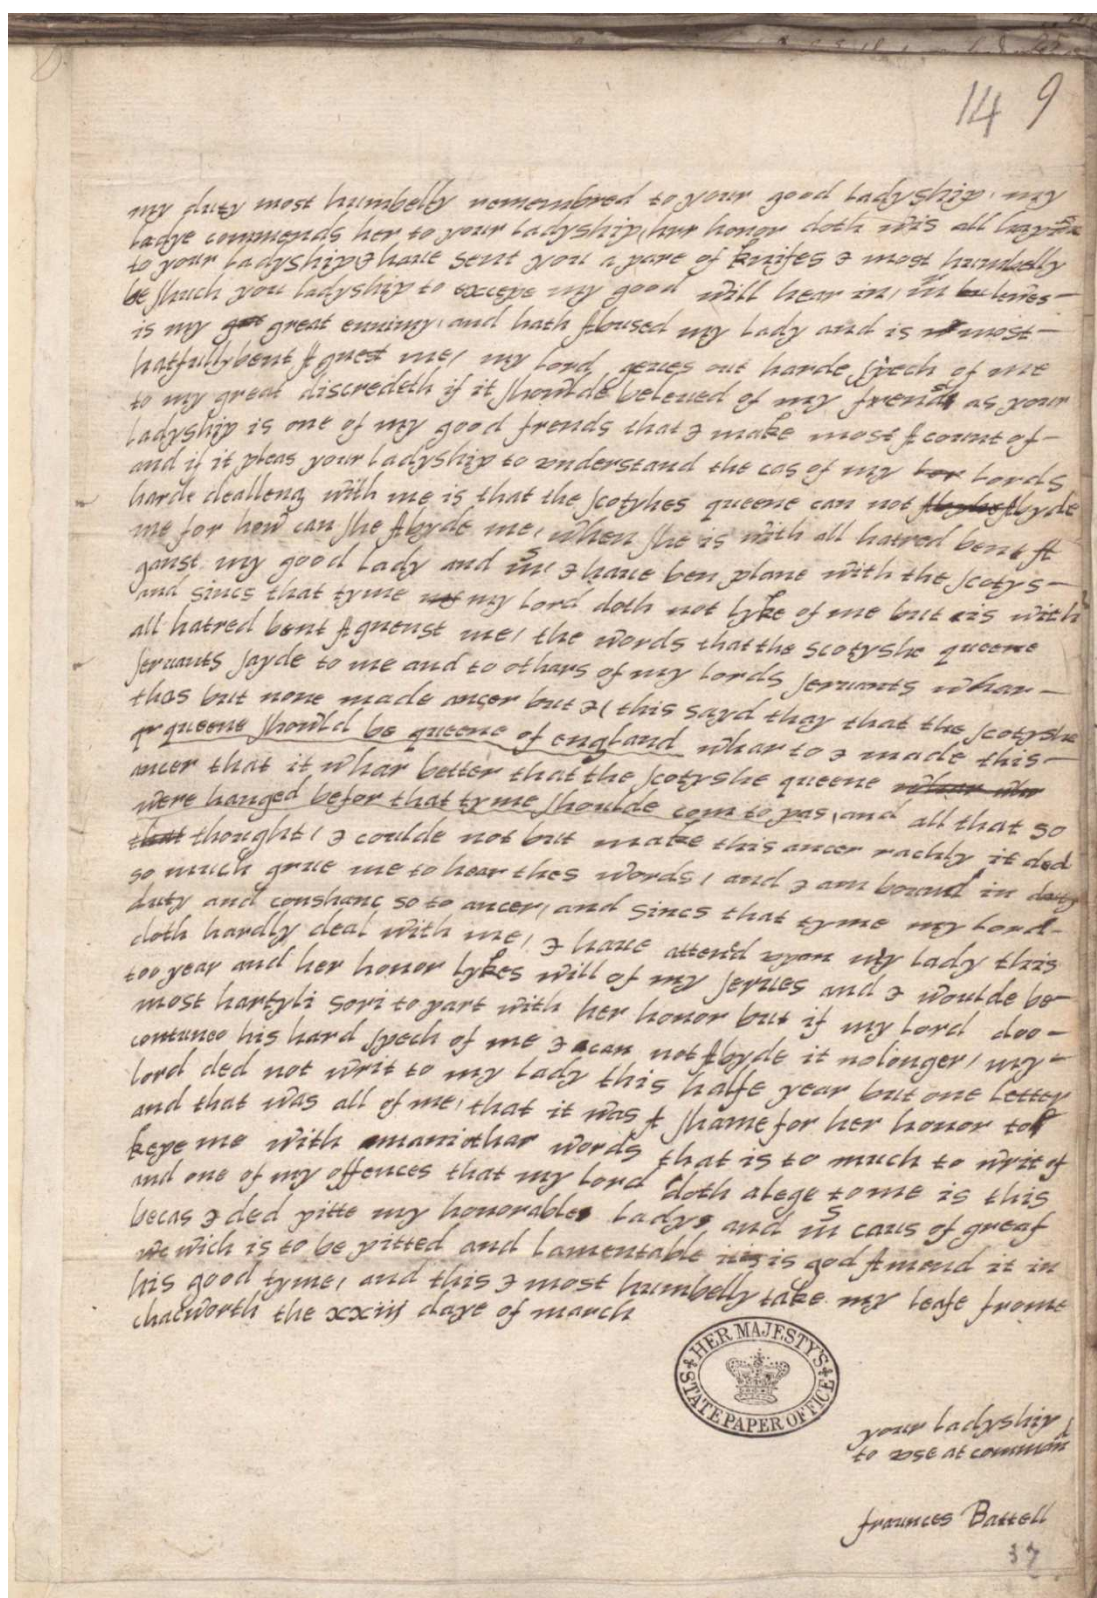 14 9
my duty most humbelly remembred to your good Ladyship, my
Ladye commends her to your Ladyship, hur honor doth wis all
to your Ladyship I have sent you a pare of knifes I most humbelly
be shuch you ladyship to excepe my good will hear in, leives
is my great ennimy, and hath Abused my Lady and is most
hatfully bent Agnest me, my Lord geues out harde spech of me
to my great discredeth if it showlde beleued of my frends as your
Ladyship is one of my good frends that I make most Acount of
and if it pleas your Ladyship to understand the cas of my Lords
harde dealleng with me is that the scotyhes queene can not Abyde
me for how can she Abyde me, when she is with all hatred bent A
ganst my good Lady and I have ben plane with the scotys
and sincs that tyme my Lord doth not lyke of me but is with
all hatred bent Agnenst me, the words that the scotyshe queene
servants sayde to me and to othars of my Lords servants whar
thos but none made ancer but I, this sayd thay that the scotyshe
queene showld be queene of england whar to I made this
ancer that it whar better that the scotyshe queene
were hanged befor that tyme shoulde com to pas, and all that so
thought, I coulde not but make this ancer rachly it ded
so much grue me to hear thes words, and I am bound in duty
duty and conshanc so to ancer, and sincs that tyme my Lord
doth hardly deal with me, I haue attend upon my Lady this
too year and her honor lykes will of my serues and I woulde be
most hartyli sori to part with her honor but if my Lord doo
contuneo his hard spech of me I can not Abyde it no longer, my
Lord ded not writ to my Lady this halfe year but one Letter
and that was all of me, that it was A shame for her honor to
kepe me with maniothar words that is to much to writ of
and one of my offences that my Lord doth alege to me is this
becas I ded pitte my honorable Lady and in caus of greaf
wich is to be pitted and Lamentable is god Amend it in
his good tyme, and this I most humbelly take my leafe frome
chacworth the xxiij daye of march
HER MAJESTY'S
STATE PAPER OFFICE
your Ladyship
to use at command
fraunces Battell
37